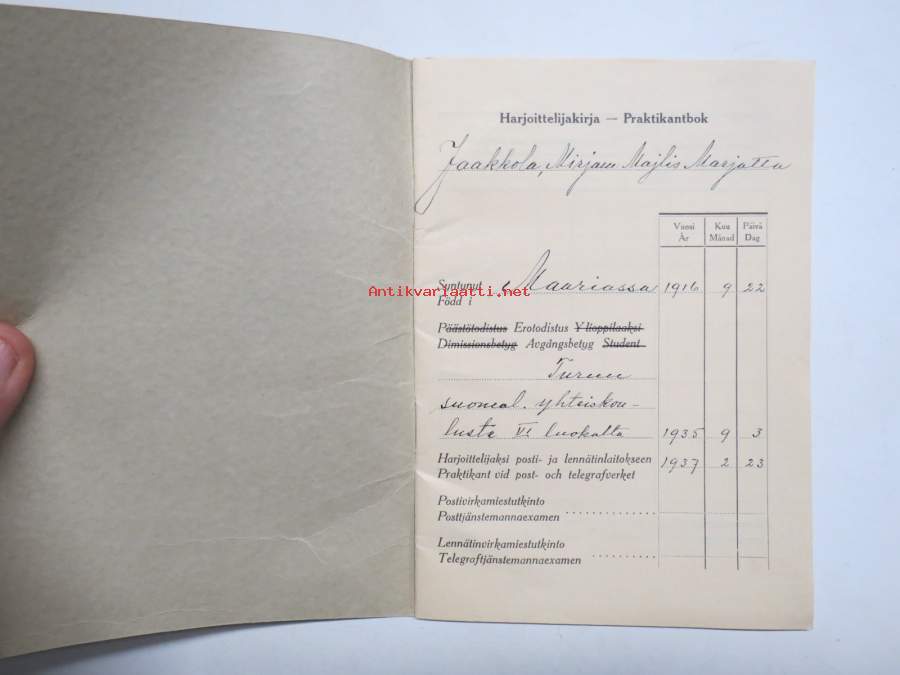 Harjoittelijakirja — Praktikantbok
Jaakkola, Mirjam Majlis Marjatta
Vuosi Kuu Päivä
År Månad Dag
Syntynyt Maariassa 1916 9 22
Född i
Antikvariaatti.net
Päästötodistus Erotodistus Ylioppilaaksi
Dimissionsbetyg Avgångsbetyg Student
Turun
suomal. yhteiskou-
lusta VI luokalta 1935 9 3
Harjoittelijaksi posti- ja lennätinlaitokseen 1937 2 23
Praktikant vid post- och telegrafverket
Postivirkamiestutkinto
Posttjänstemannaexamen
Lennätinvirkamiestutkinto
Telegraftjänstemannaexamen